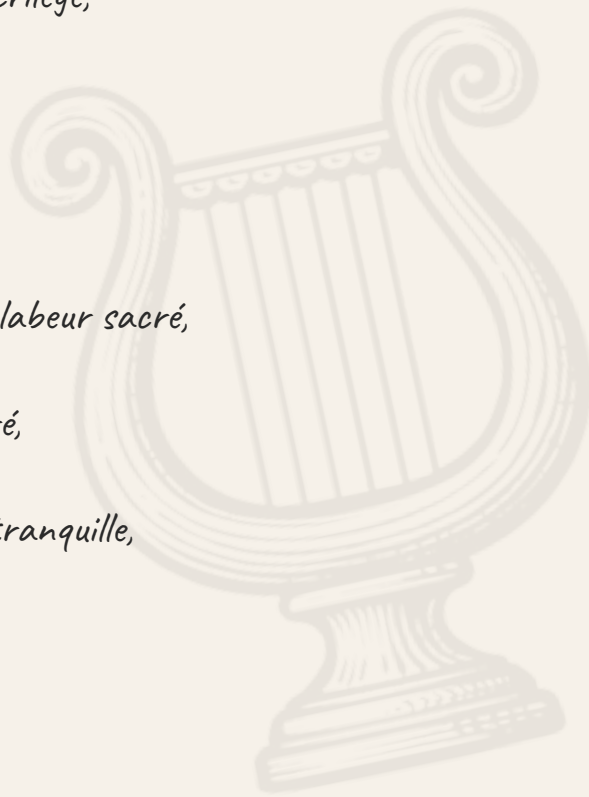 labeur sacré,
é,
tranquille,